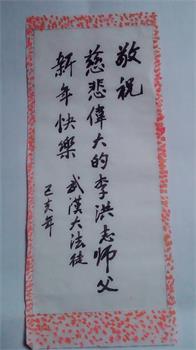 敬祝
慈悲偉大的李洪志師父
新年快樂
武漢大法徒
己亥年